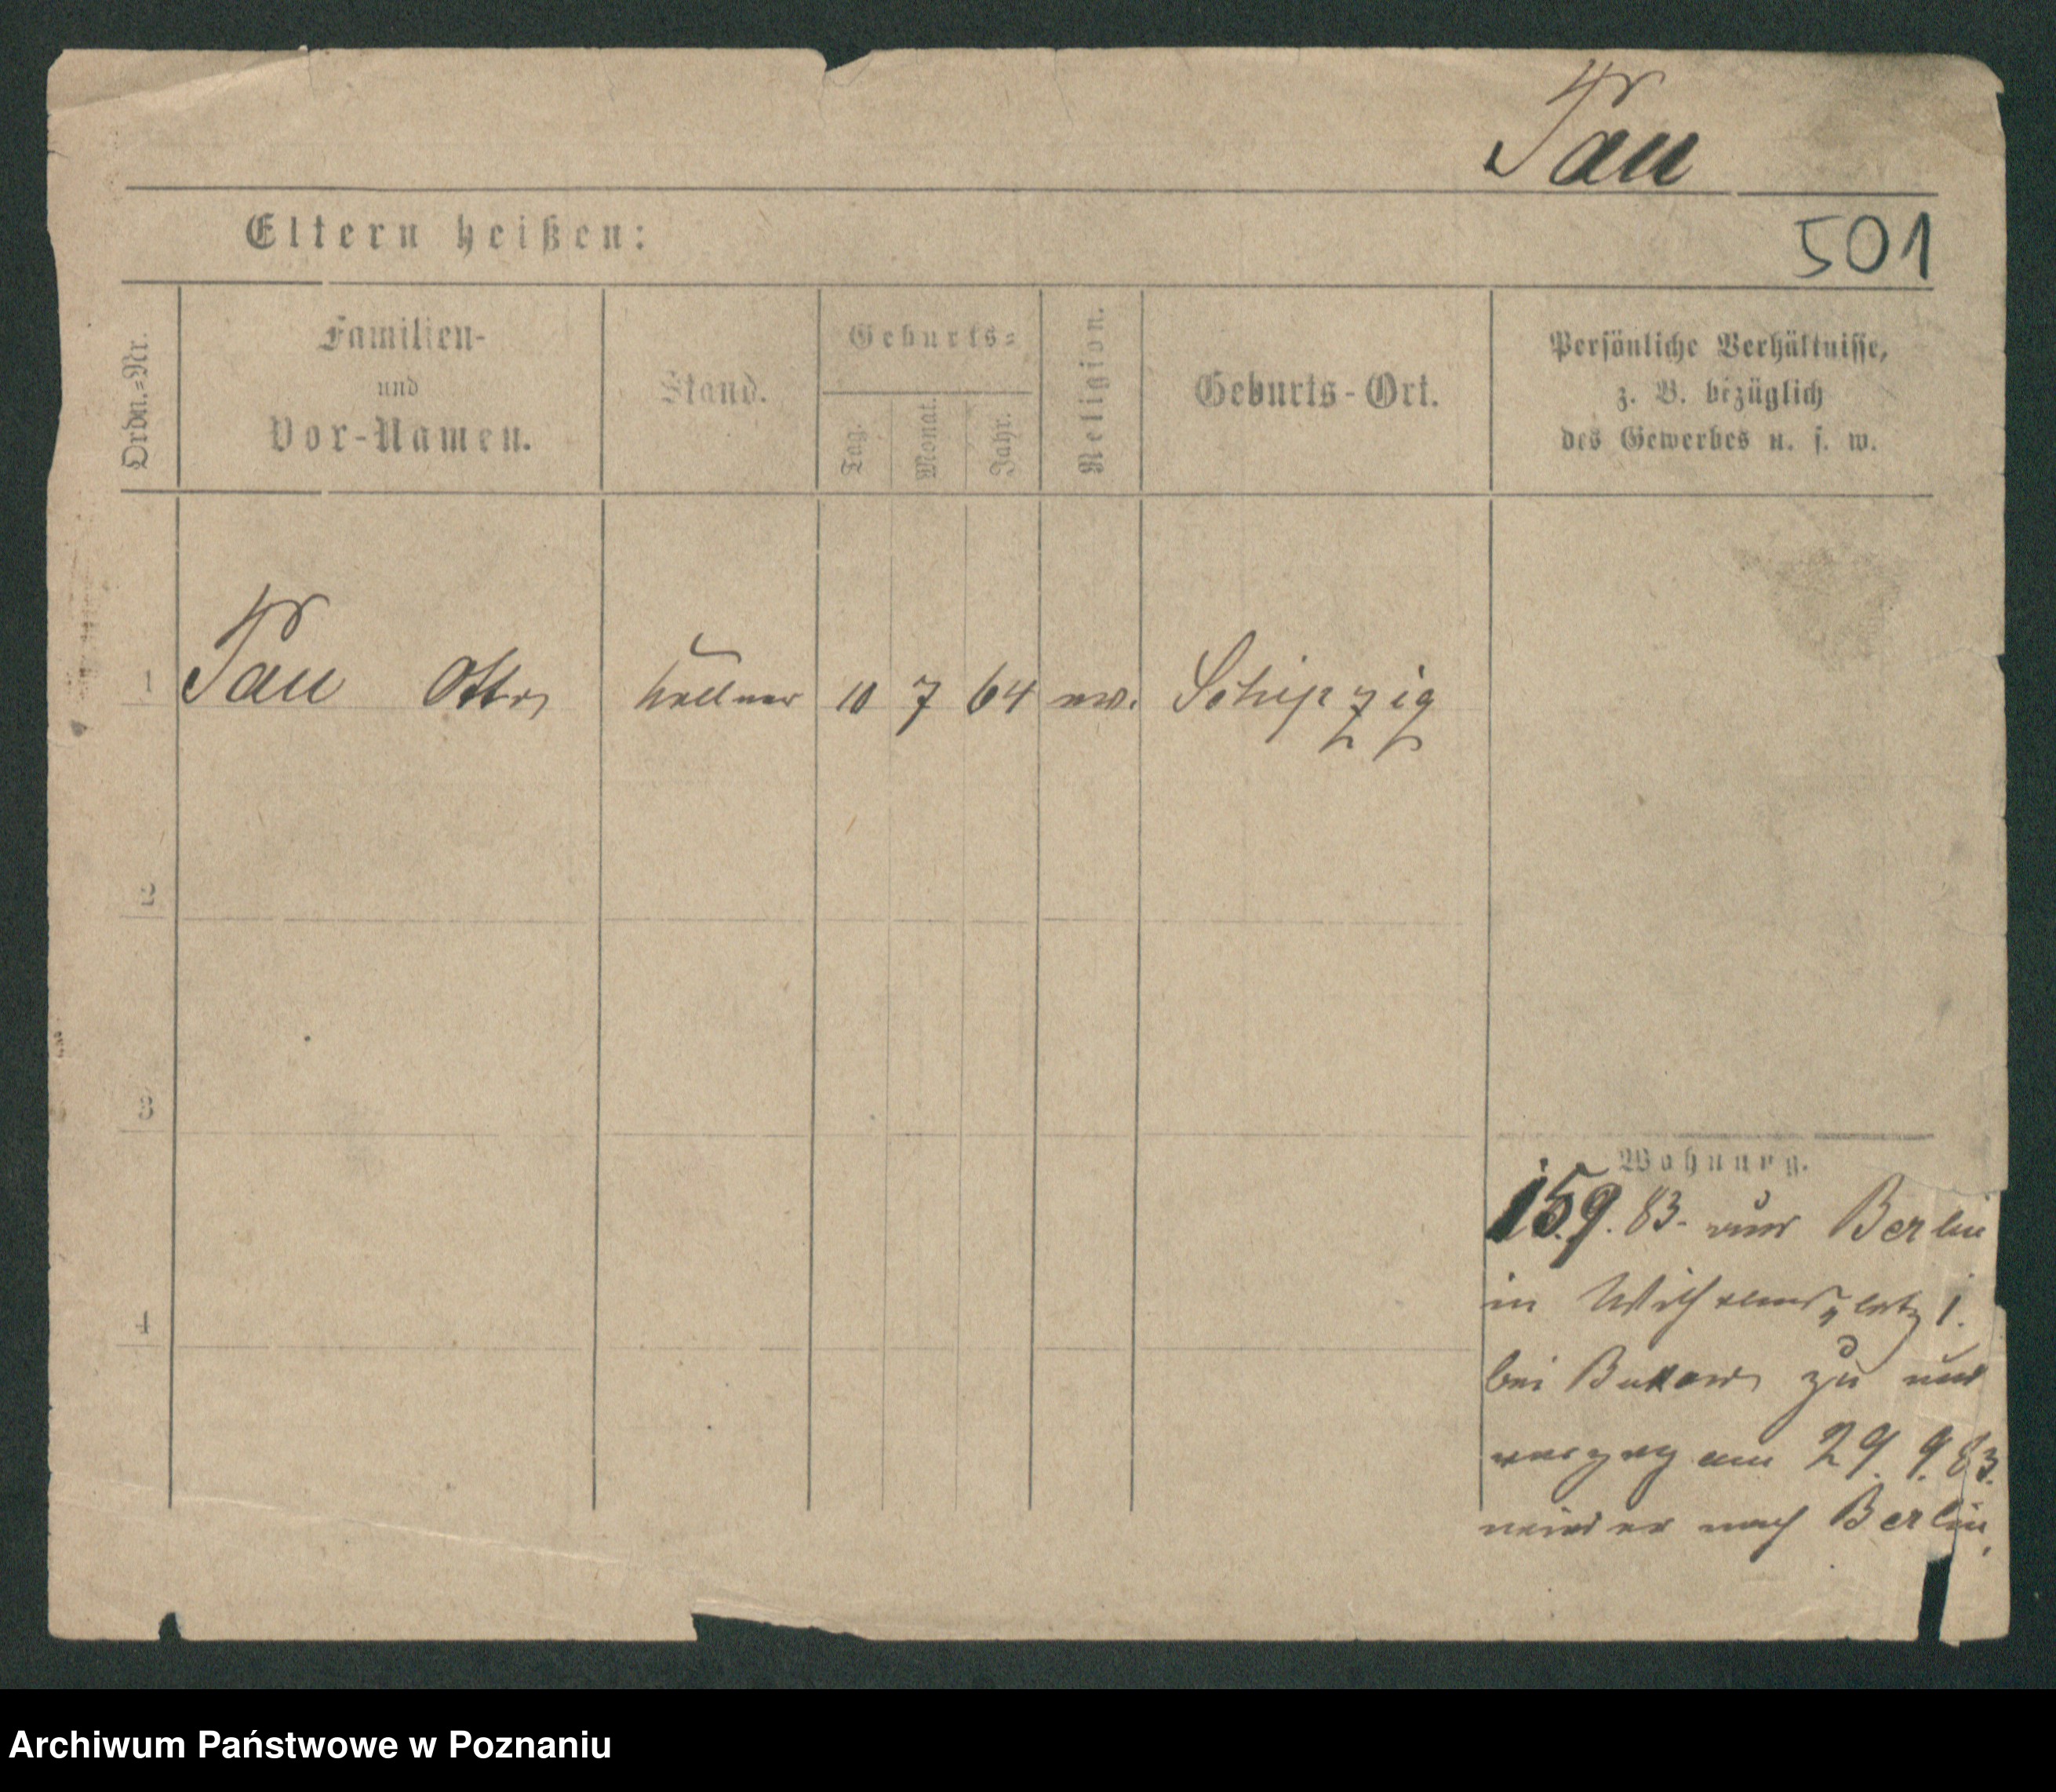 Tau
Eltern heißen:
501
Ordn.=Nr.
Familien-
und
Vor-Namen.
Stand.
Geburts=
Tag.
Monat.
Jahr.
Religion.
Geburts-Ort.
Persönliche Verhältnisse,
z. B. bezüglich
des Gewerbes u. s. w.
1 Tau Otto Kellner 10 7 64 ev.
2
3
4
Wohnung.
15.9.83. von Berlin
in Wilhelmsplatz 1.
bei zu und
verzog am 29.9.83.
wieder nach Berlin.
Archiwum Państwowe w Poznaniu